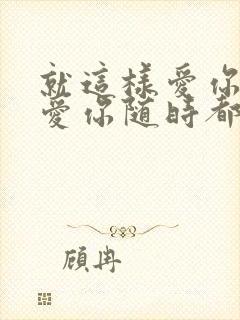 就這樣愛你
愛你隨時都
顧冉